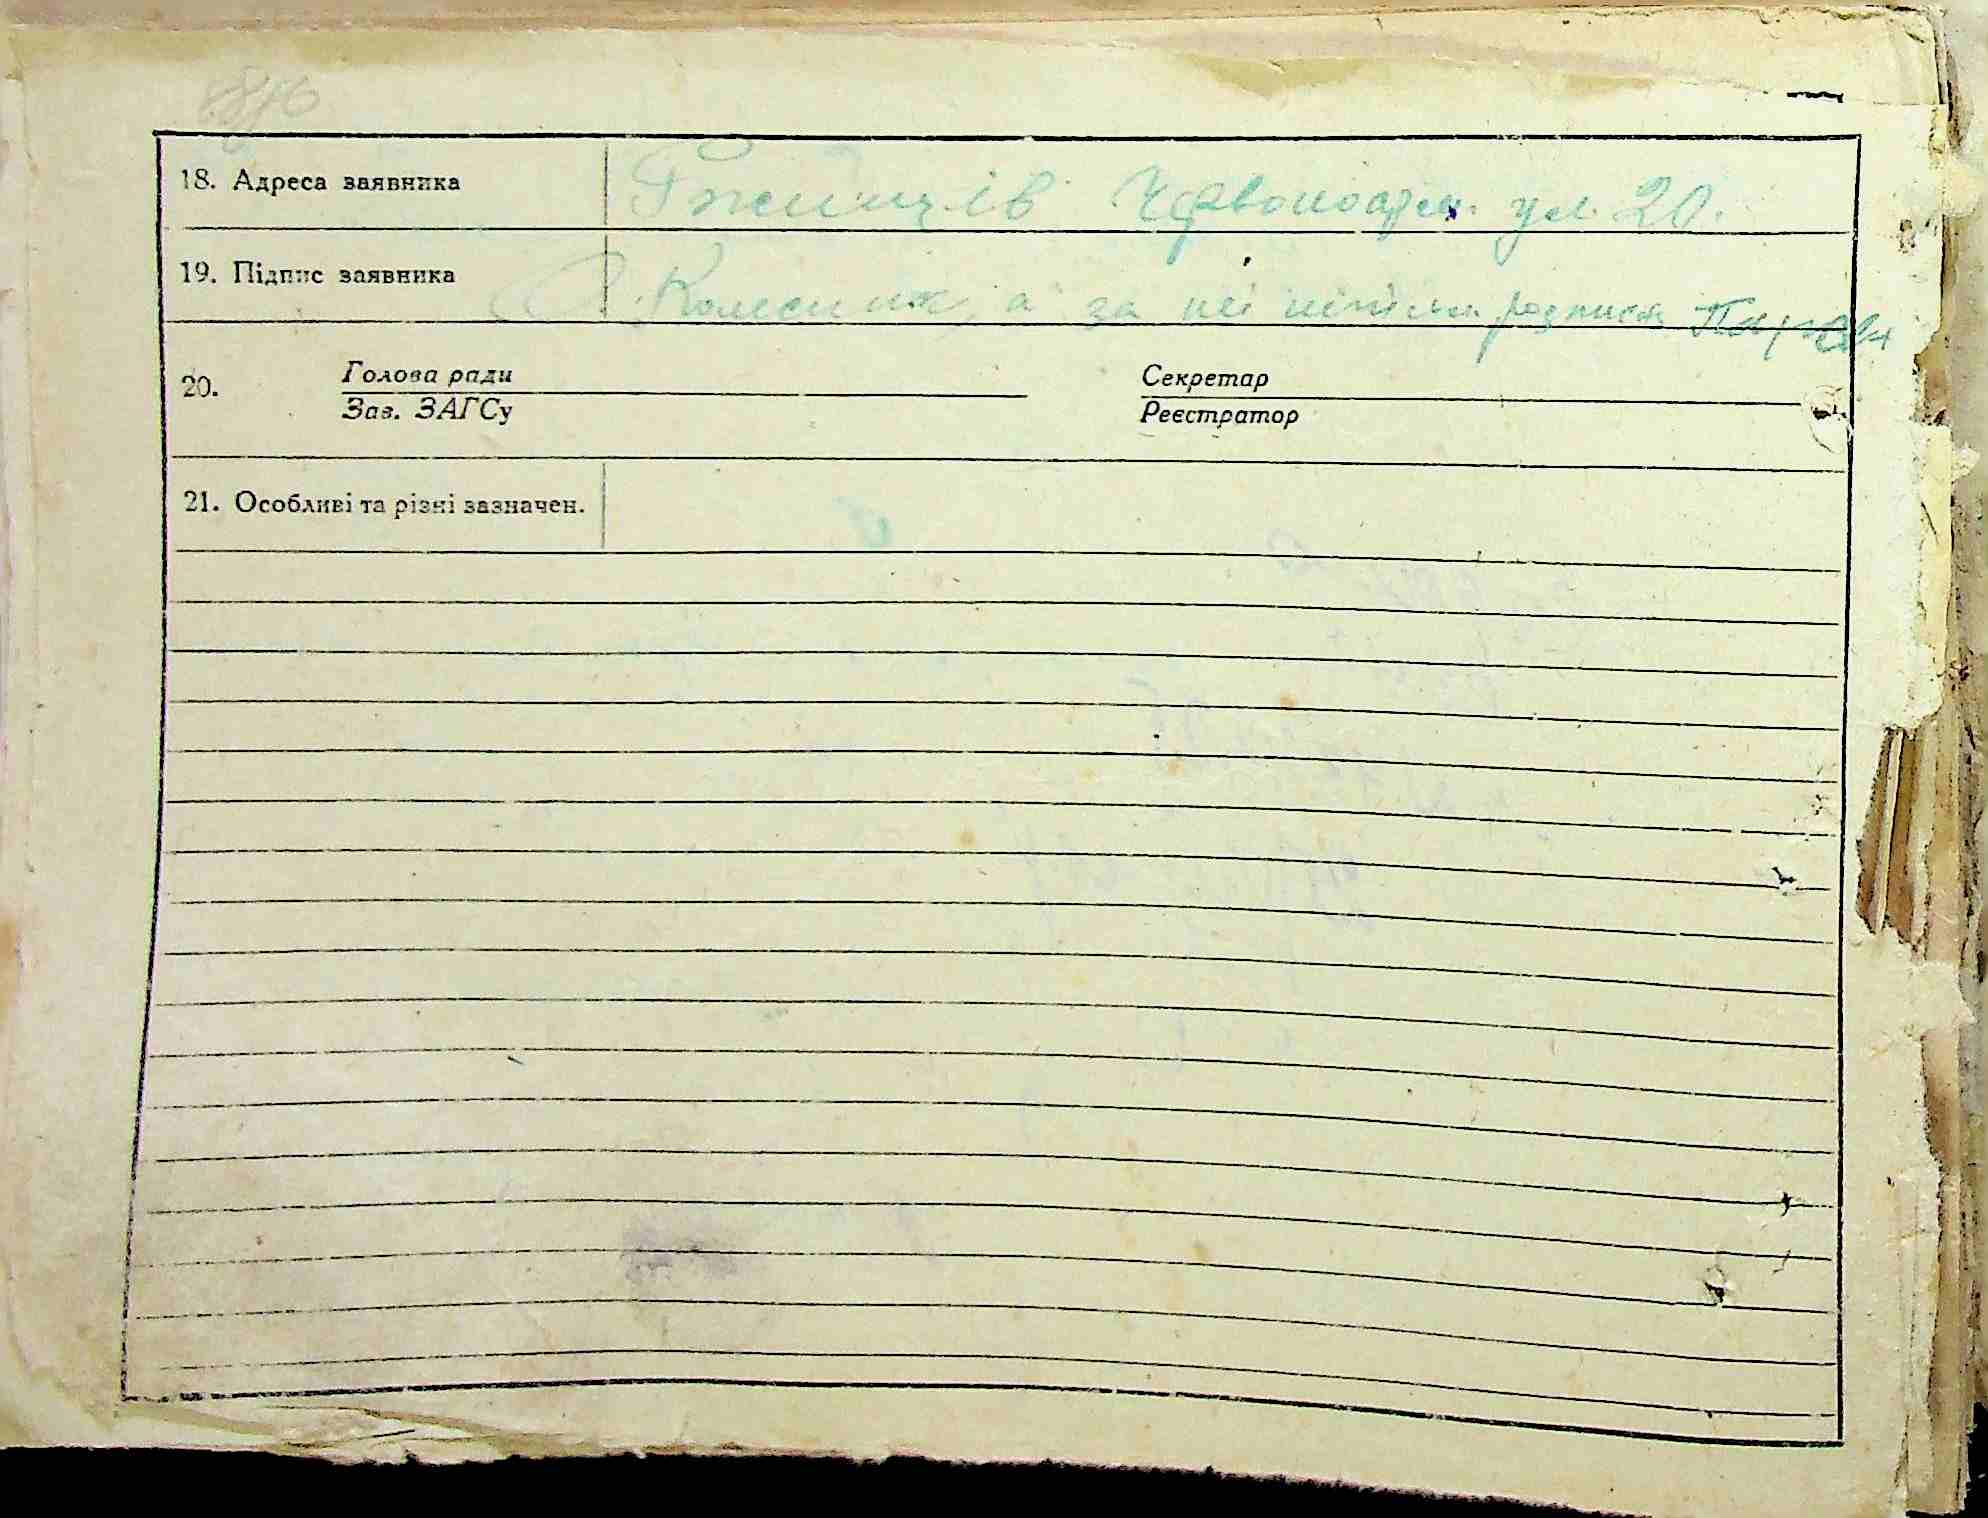 18. Адреса заявника Ржищів Червоноарм. ул. 20.
19. Підпис заявника Колесник, а за неї розписа
20. Голова ради Секретар
Зав. ЗАГСу Реєстратор
21. Особливі та різні зазначен.